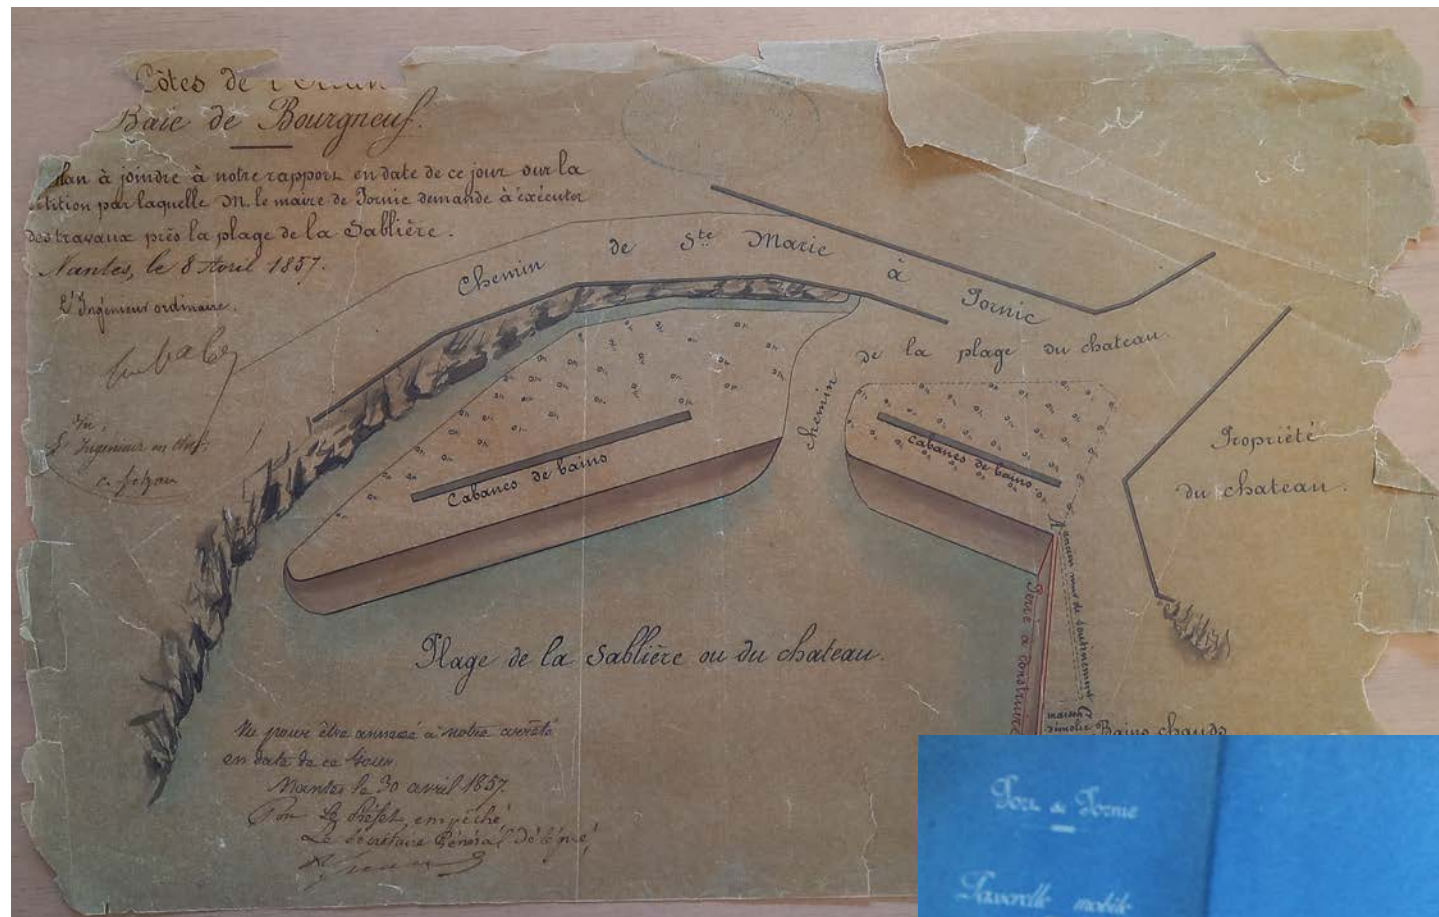 Côtes de l'Océan
Baie de Bourgneuf.
Plan à joindre à notre rapport en date de ce jour sur la
pétition par laquelle M. le maire de Pornic demande à exécuter
des travaux près la plage de la Sablière.
Nantes, le 8 Avril 1857.
L'Ingénieur ordinaire,
Vu,
L'Ingénieur en chef,
Chemin de Ste Marie à Pornic
Chemin de la plage du chateau.
Cabanes de bains
Cabanes de bains
Propriété
du chateau.
Ancien mur de soutènement
Perré à construire
maison
démolie
Bains chauds
Plage de la Sablière ou du chateau.
Vu pour être annexé à notre arrêté
en date de ce jour
Nantes le 30 avril 1857.
Pour Le Préfet empêché,
Le Secrétaire Général Délégué,
Port de Pornic
Passerelle mobile